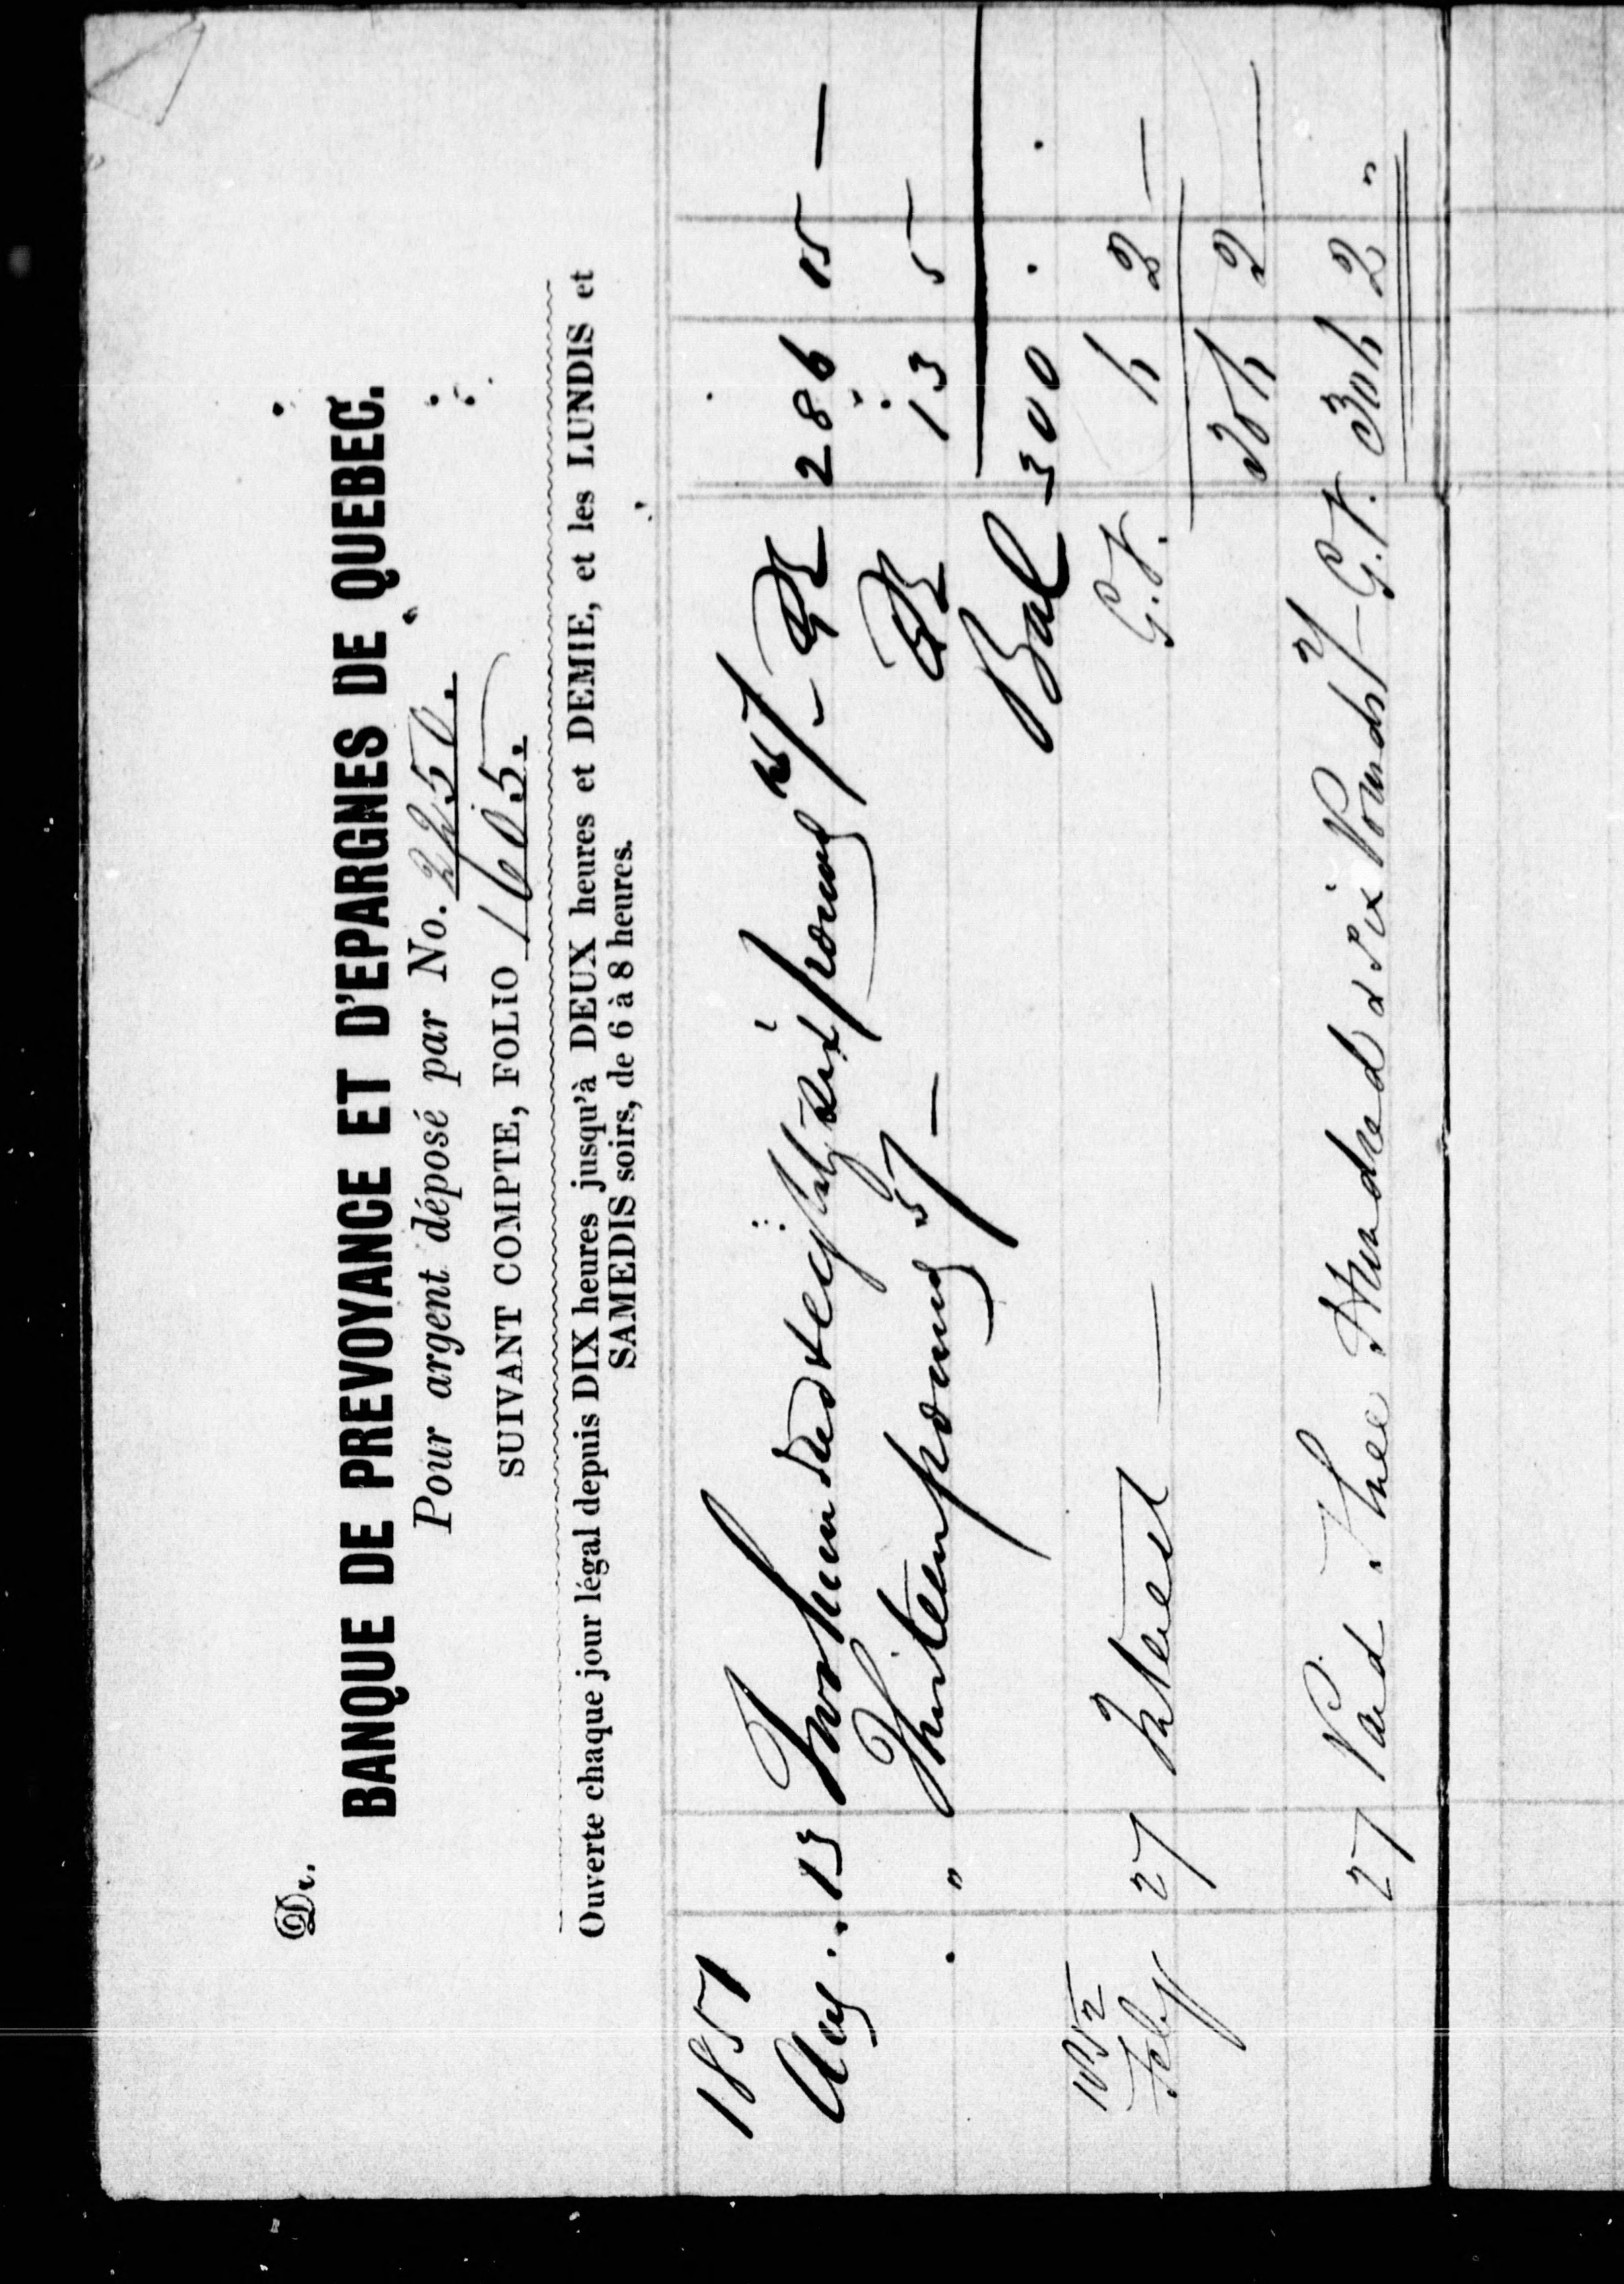 Dr.
BANQUE DE PREVOYANCE ET D'EPARGNES DE QUEBEC.
Pour argent déposé par No. 2250.
SUIVANT COMPTE, FOLIO 1605.
Ouverte chaque jour légal depuis DIX heures jusqu'à DEUX heures et DEMIE, et les LUNDIS et
SAMEDIS soirs, de 6 à 8 heures.
1851
Aug. 13 Two hundred & eighty six pounds 15/- 286 15 —
" Thirteen pounds 5/- 13 5
Bal 300 . .
1852
Feby 27 Interest — G.V. 6 2 —
306 2 —
27 Paid Three Hundred & Six Pounds 2/- G.V. 306 2 "